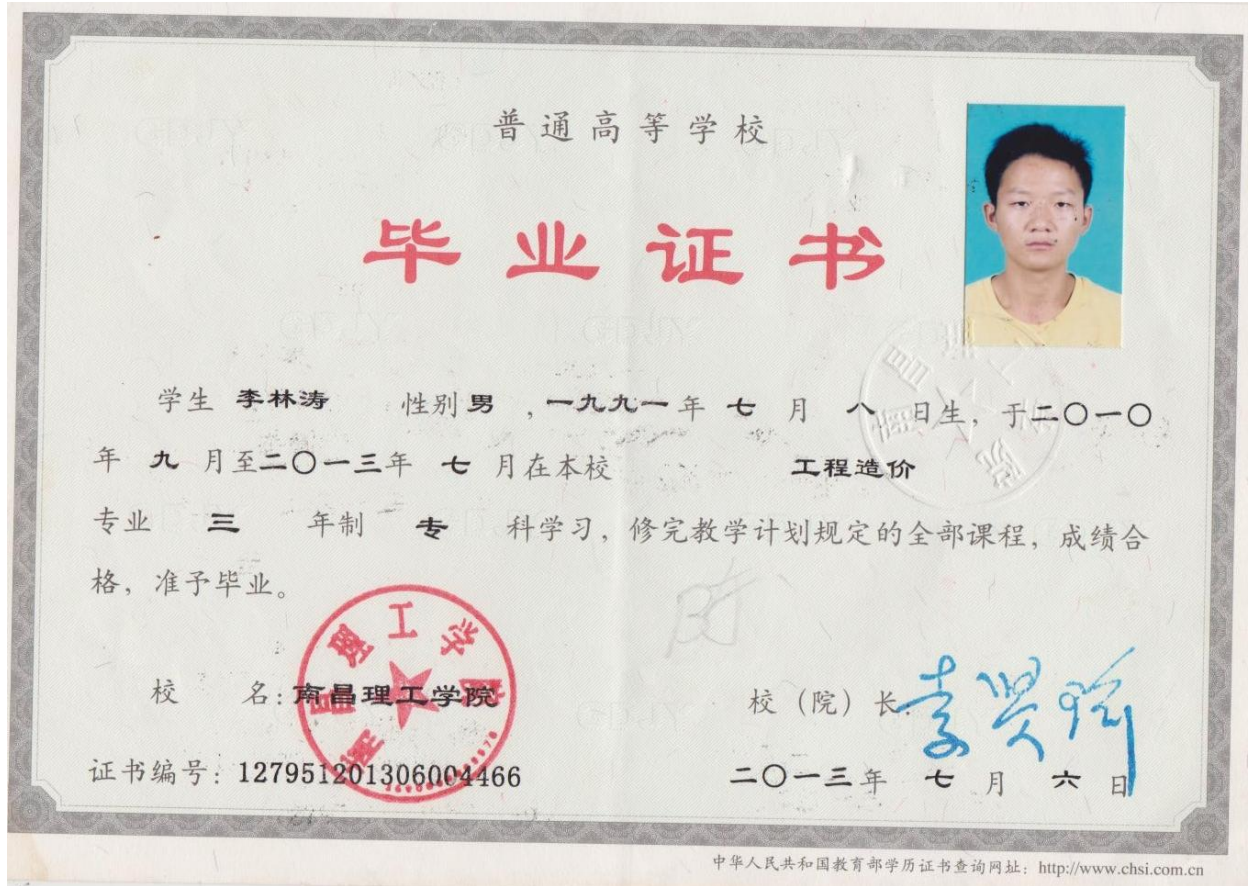 普通高等学校
毕业证书
学生 李林涛 性别 男 ,一九九一 年 七 月 八 日生, 于二〇一〇
年 九 月至二〇一三年 七 月在本校 工程造价
专业 三 年制 专 科学习, 修完教学计划规定的全部课程, 成绩合
格, 准予毕业。
校 名: 南昌理工学院
校 (院) 长:
证书编号: 127951201306004466
二〇一三年 七 月 六 日
中华人民共和国教育部学历证书查询网址: http://www.chsi.com.cn